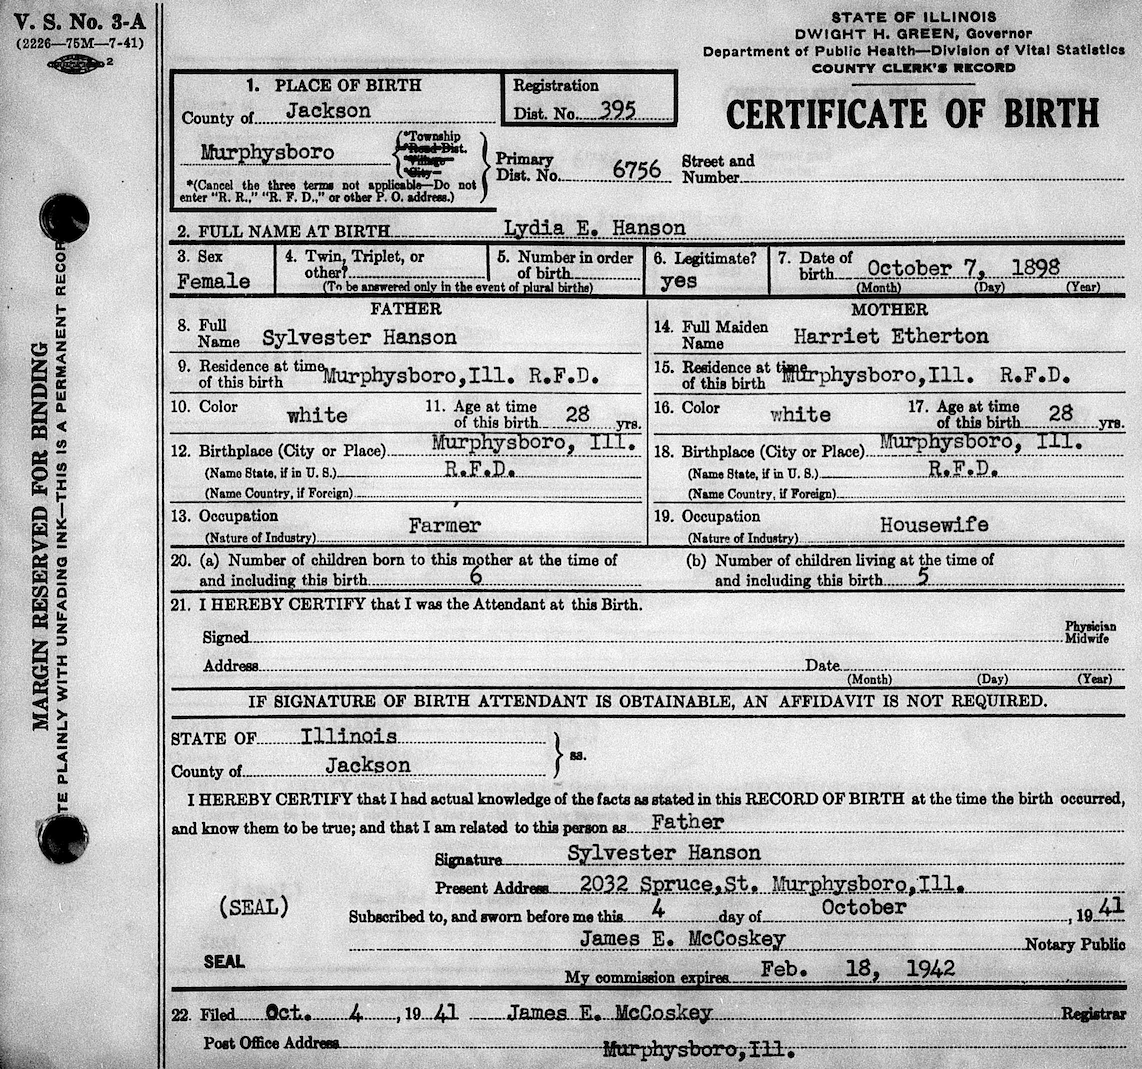 V. S. No. 3-A
(2226—75M—7-41)
2
STATE OF ILLINOIS
DWIGHT H. GREEN, Governor
Department of Public Health—Division of Vital Statistics
COUNTY CLERK'S RECORD
CERTIFICATE OF BIRTH
1. PLACE OF BIRTH
County of Jackson
Registration
Dist. No. 395
Murphysboro
*Township
*Road Dist.
*Village
*City
*(Cancel the three terms not applicable—Do not
enter "R. R.," "R. F. D.," or other P. O. address.)
Primary
Dist. No. 6756
Street and
Number
2. FULL NAME AT BIRTH Lydia E. Hanson
3. Sex
Female
4. Twin, Triplet, or
other?
5. Number in order
of birth
(To be answered only in the event of plural births)
6. Legitimate?
yes
7. Date of
birth October 7, 1898
(Month) (Day) (Year)
FATHER
8. Full
Name Sylvester Hanson
9. Residence at time
of this birth Murphysboro,Ill. R.F.D.
10. Color white
11. Age at time
of this birth 28 yrs.
12. Birthplace (City or Place) Murphysboro, Ill.
(Name State, if in U. S.) R.F.D.
(Name Country, if Foreign)
13. Occupation
(Nature of Industry) Farmer
MOTHER
14. Full Maiden
Name Harriet Etherton
15. Residence at time
of this birth Murphysboro,Ill. R.F.D.
16. Color white
17. Age at time
of this birth 28 yrs.
18. Birthplace (City or Place) Murphysboro, Ill.
(Name State, if in U. S.) R.F.D.
(Name Country, if Foreign)
19. Occupation
(Nature of Industry) Housewife
20. (a) Number of children born to this mother at the time of
and including this birth 6
(b) Number of children living at the time of
and including this birth 5
21. I HEREBY CERTIFY that I was the Attendant at this Birth.
Signed Physician
Midwife
Address Date
(Month) (Day) (Year)
IF SIGNATURE OF BIRTH ATTENDANT IS OBTAINABLE, AN AFFIDAVIT IS NOT REQUIRED.
STATE OF Illinois
County of Jackson
ss.
I HEREBY CERTIFY that I had actual knowledge of the facts as stated in this RECORD OF BIRTH at the time the birth occurred,
and know them to be true; and that I am related to this person as Father
Signature Sylvester Hanson
Present Address 2032 Spruce,St. Murphysboro,Ill.
(SEAL)
Subscribed to, and sworn before me this 4 day of October, 19 41
James E. McCoskey Notary Public
SEAL
My commission expires Feb. 18, 1942
22. Filed Oct. 4, 19 41 James E. McCoskey Registrar
Post Office Address Murphysboro,Ill.
MARGIN RESERVED FOR BINDING
TE PLAINLY WITH UNFADING INK—THIS IS A PERMANENT RECOR